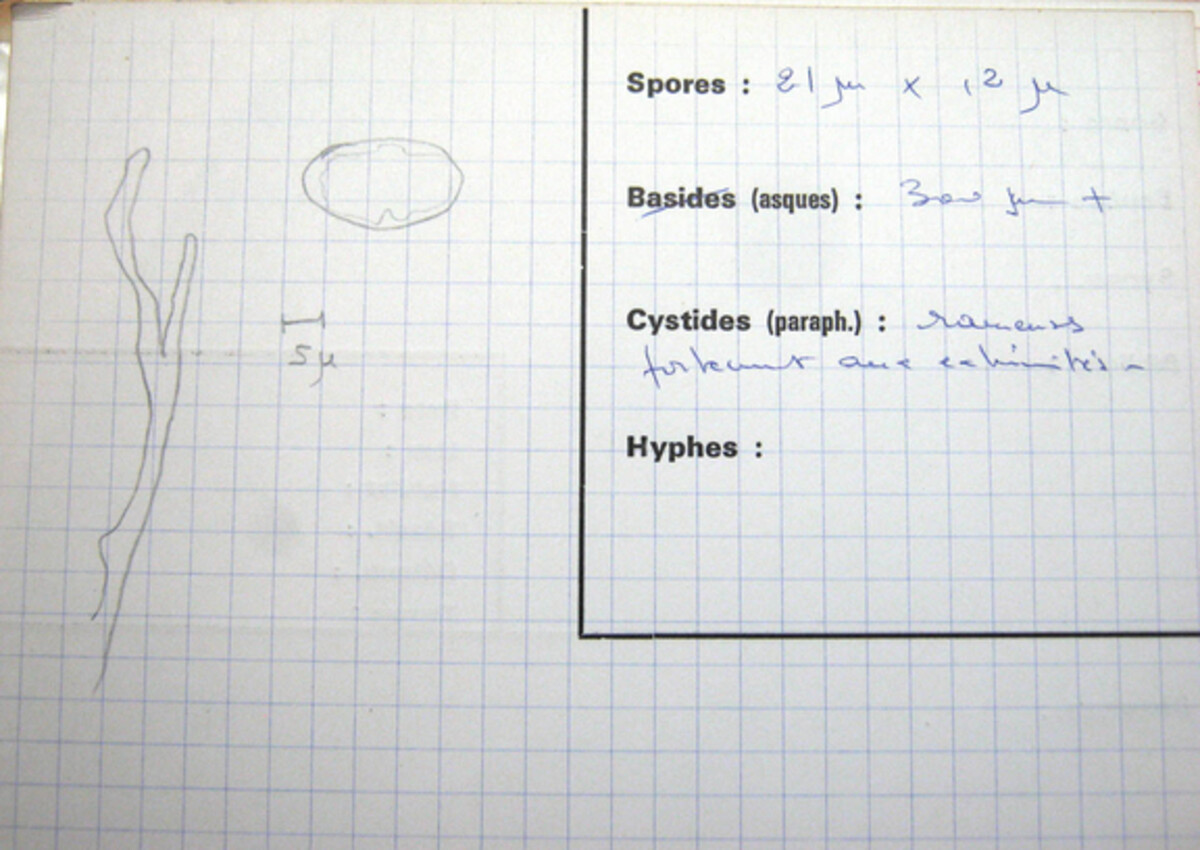 Spores : 21 µ x 12 µ
Basides (asques) : 300 µ +
Cystides (paraph.) : rameuses
fortement aux extrémités -
5µ
Hyphes :